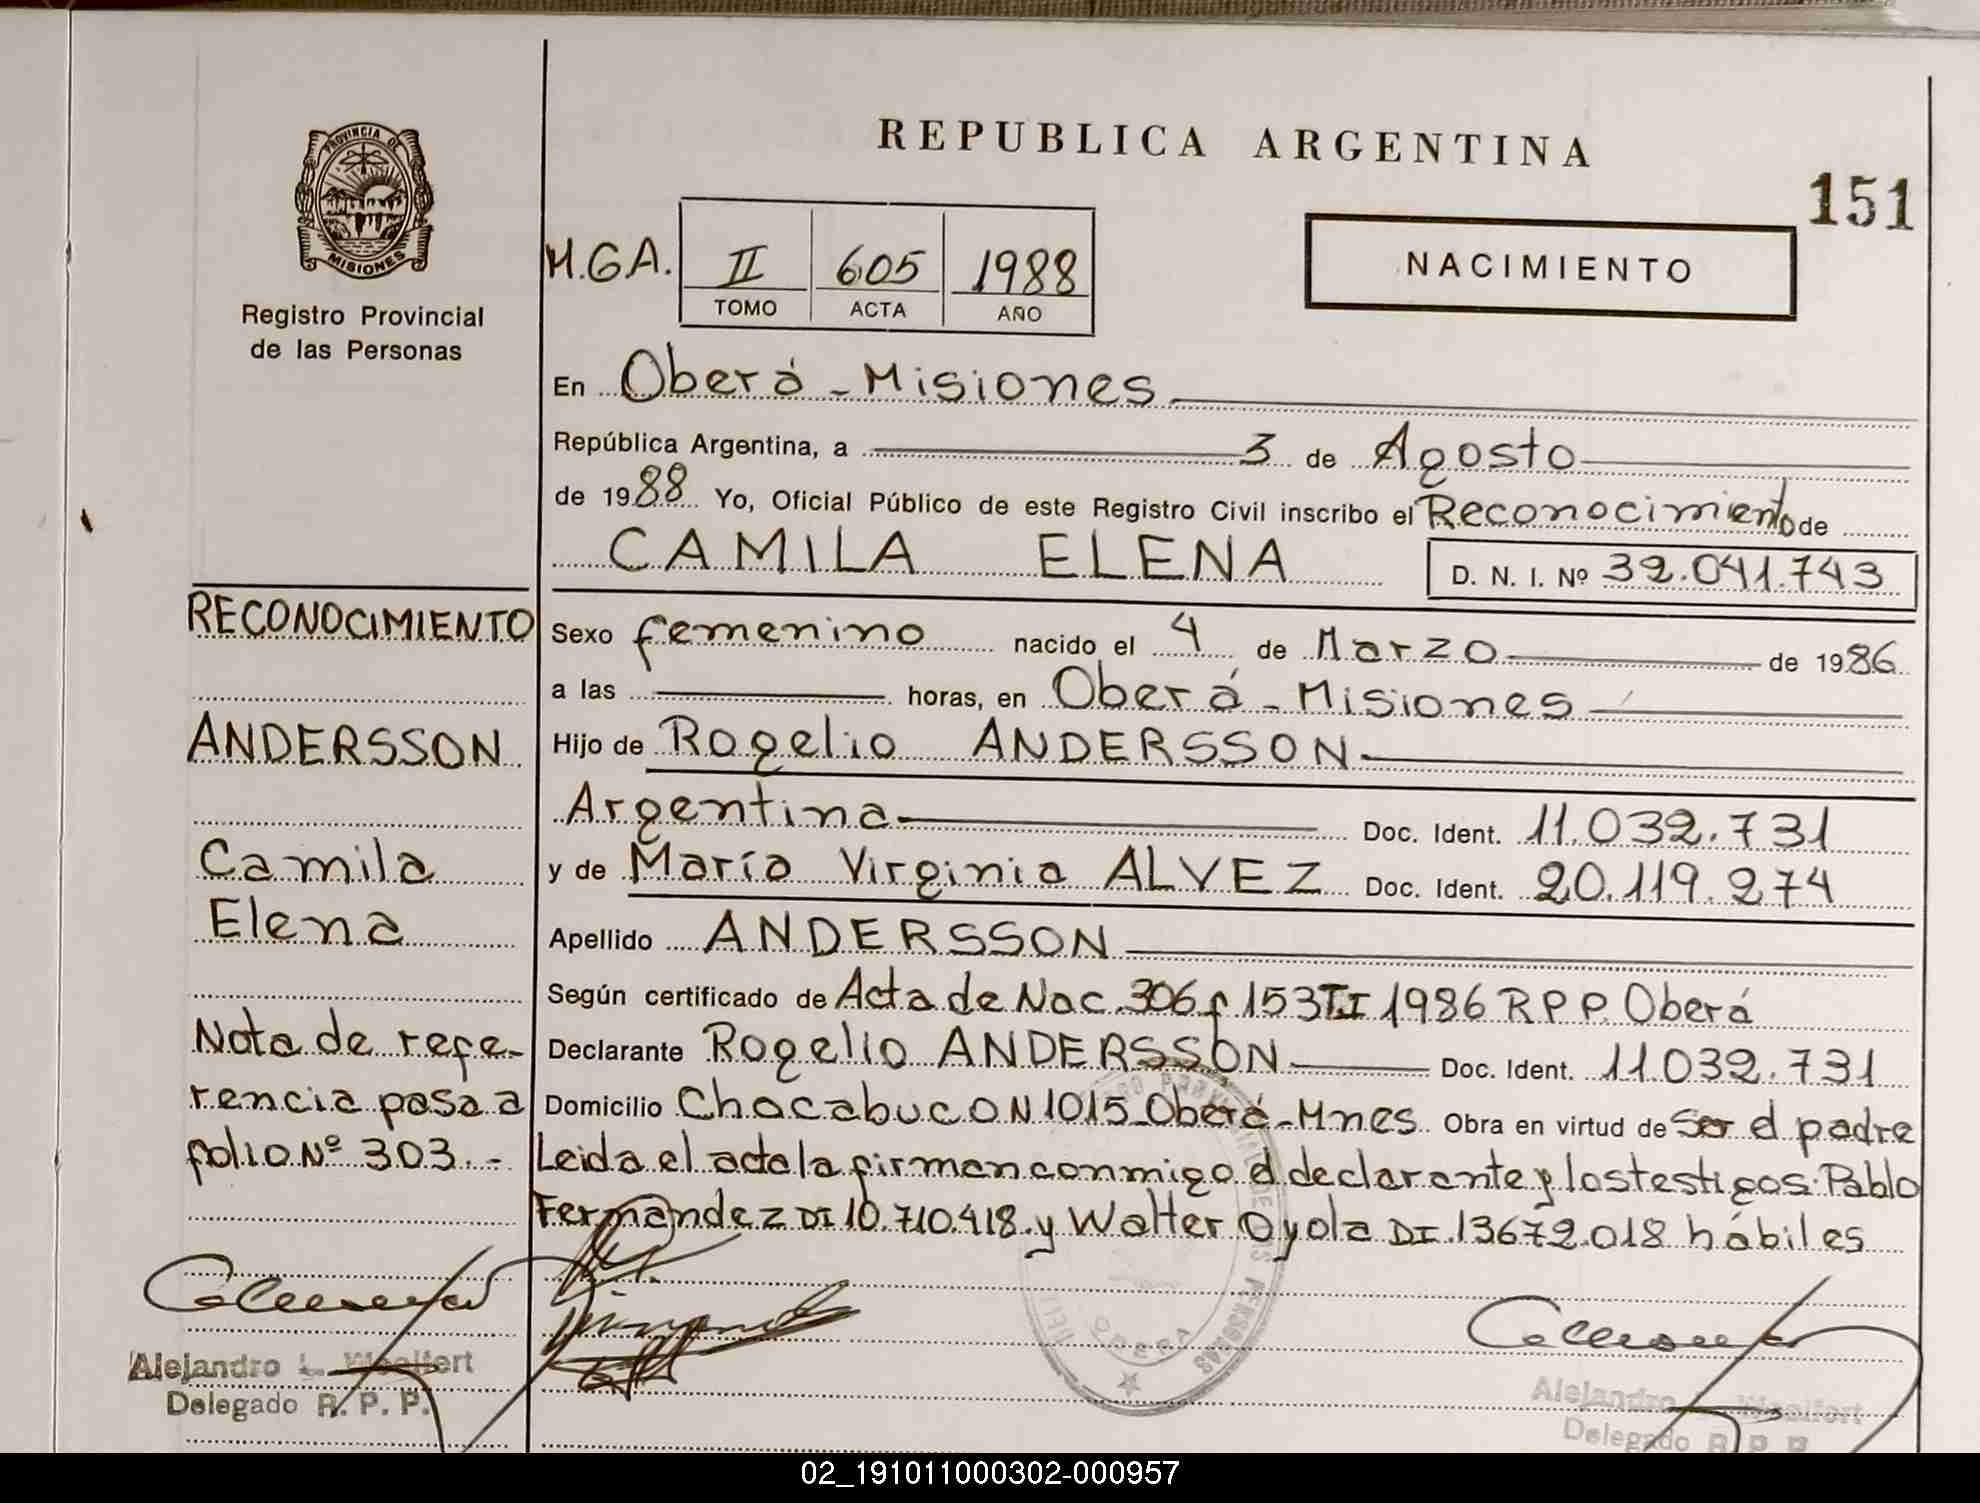 REPUBLICA ARGENTINA
151
PROVINCIA DE
MISIONES
Registro Provincial
de las Personas
M.G.A. II 605 1988
TOMO ACTA AÑO
NACIMIENTO
En Oberá - Misiones
República Argentina, a 3 de Agosto
de 1988 Yo, Oficial Público de este Registro Civil inscribo el Reconocimiento de
CAMILA ELENA D. N. I. Nº 32.041.743
Sexo femenino nacido el 4 de Marzo de 1986
a las horas, en Oberá - Misiones
Hijo de Rogelio ANDERSSON
Argentina Doc. Ident. 11.032.731
y de María Virginia ALVEZ Doc. Ident. 20.119.274
Apellido ANDERSSON
Según certificado de Acta de Nac. 306 f 153 T.I 1986 R P P. Oberá
Declarante Rogelio ANDERSSON Doc. Ident. 11.032.731
Domicilio Chacabuco N 1015 - Oberá - Mnes Obra en virtud de ser el padre
Leida el acta la firman conmigo el declarante y los testigos: Pablo
Fernandez DI 10.710.418. y Walter Oyola DI. 13672.018 hábiles
RECONOCIMIENTO
ANDERSSON
Camila
Elena
Nota de refe-
rencia pasa a
folio Nº 303.-
Alejandro L.
Delegado R. P. P.
OBERA
Alejandro
Delegado R. P. P.
02_191011000302-000957